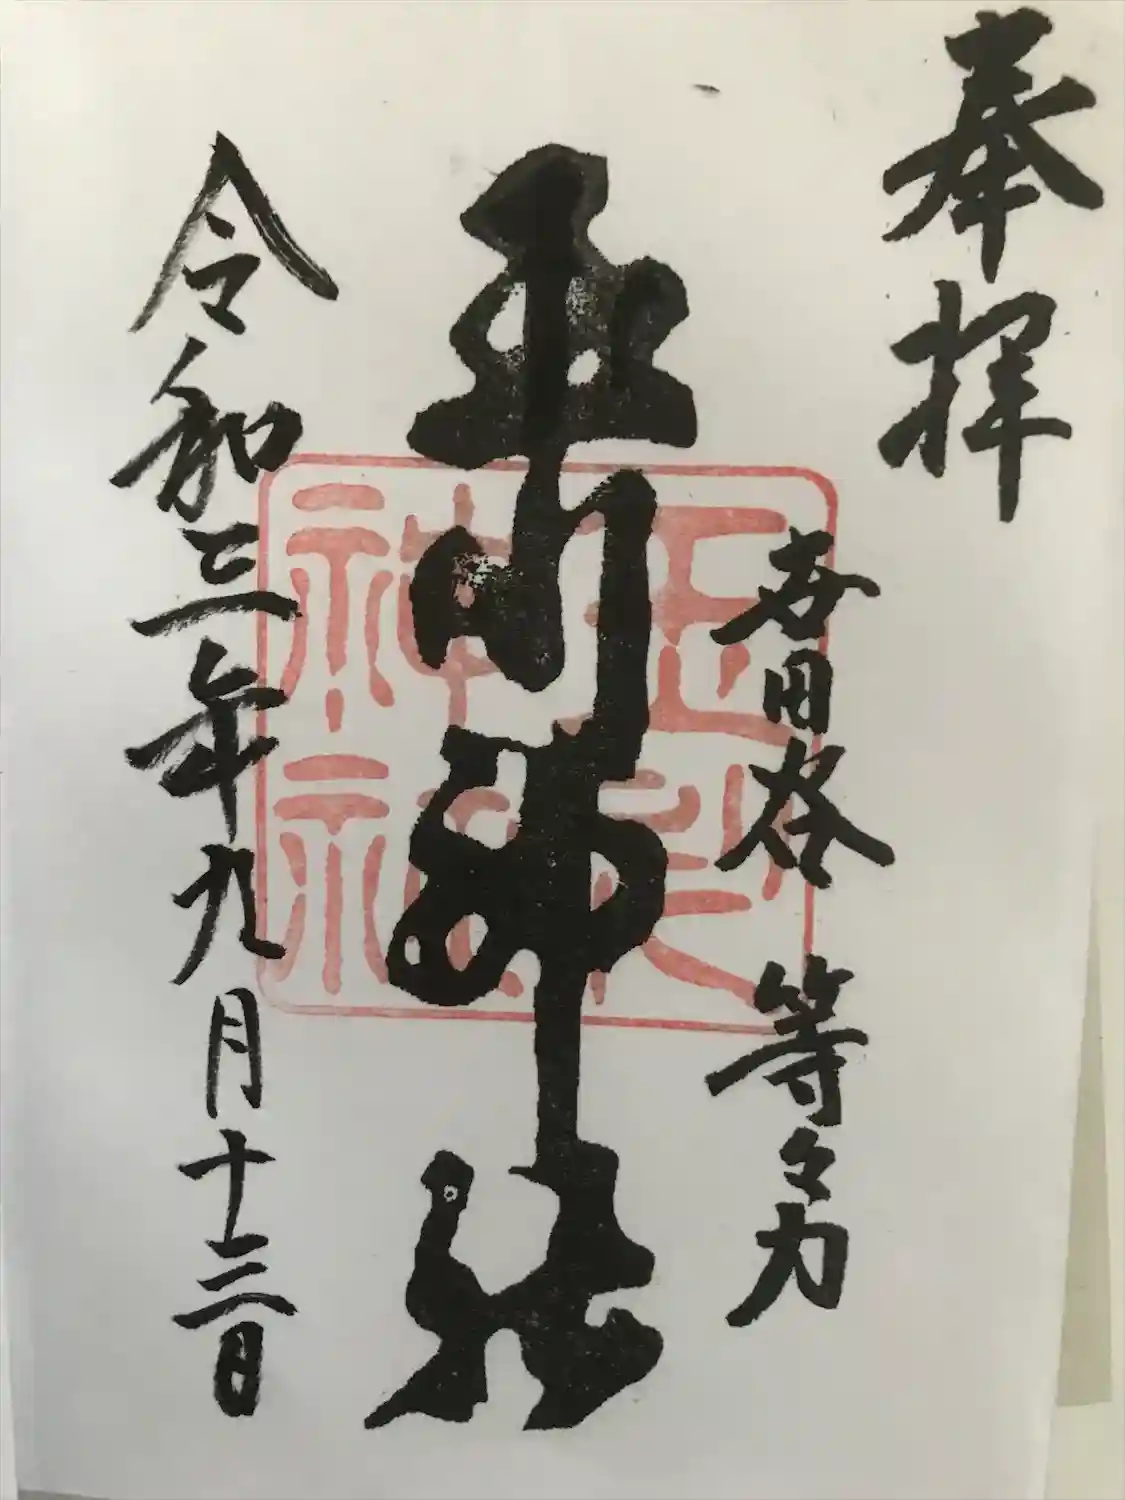 奉拝
世田谷 等々力
玉川神社
令和三年九月十三日